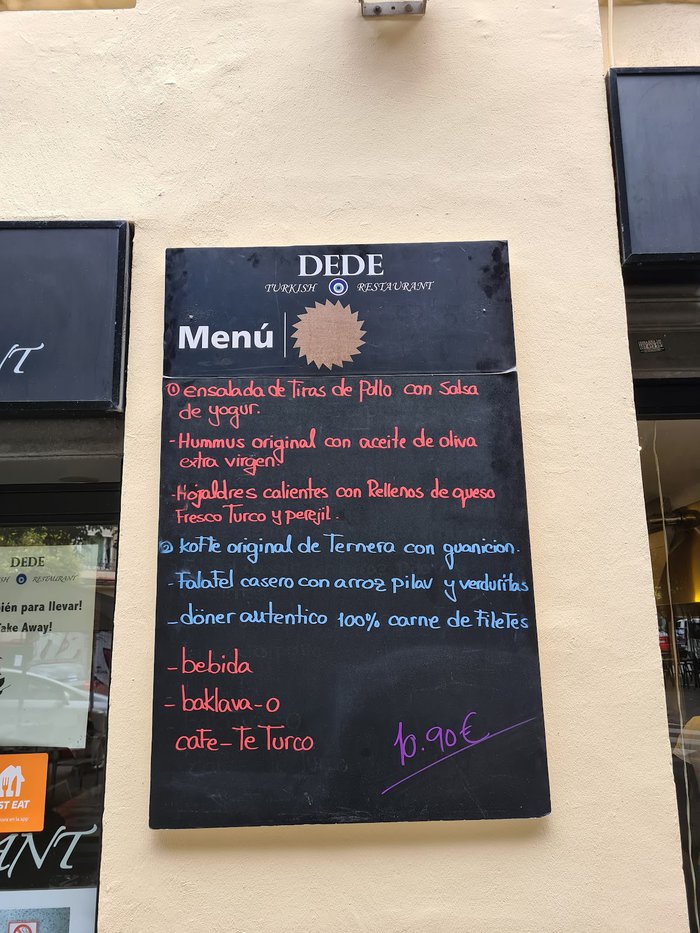 DEDE
TURKISH RESTAURANT
Menú
① ensalada de Tiras de Pollo con salsa
de yogur.
-Hummus original con aceite de oliva
extra virgen.
-Hojaldres calientes con Rellenos de queso
Fresco Turco y perejil.
② koFte original de Ternera con guanicion.
-Falafel casero con arroz pilav y verduritas
-döner autentico 100% carne de FileTes
-bebida
-baklava-o
cafe-Te Turco
10.90€
NT
DEDE
SH RESTAURANT
bién para llevar!
Take Away!
ST EAT
ANT